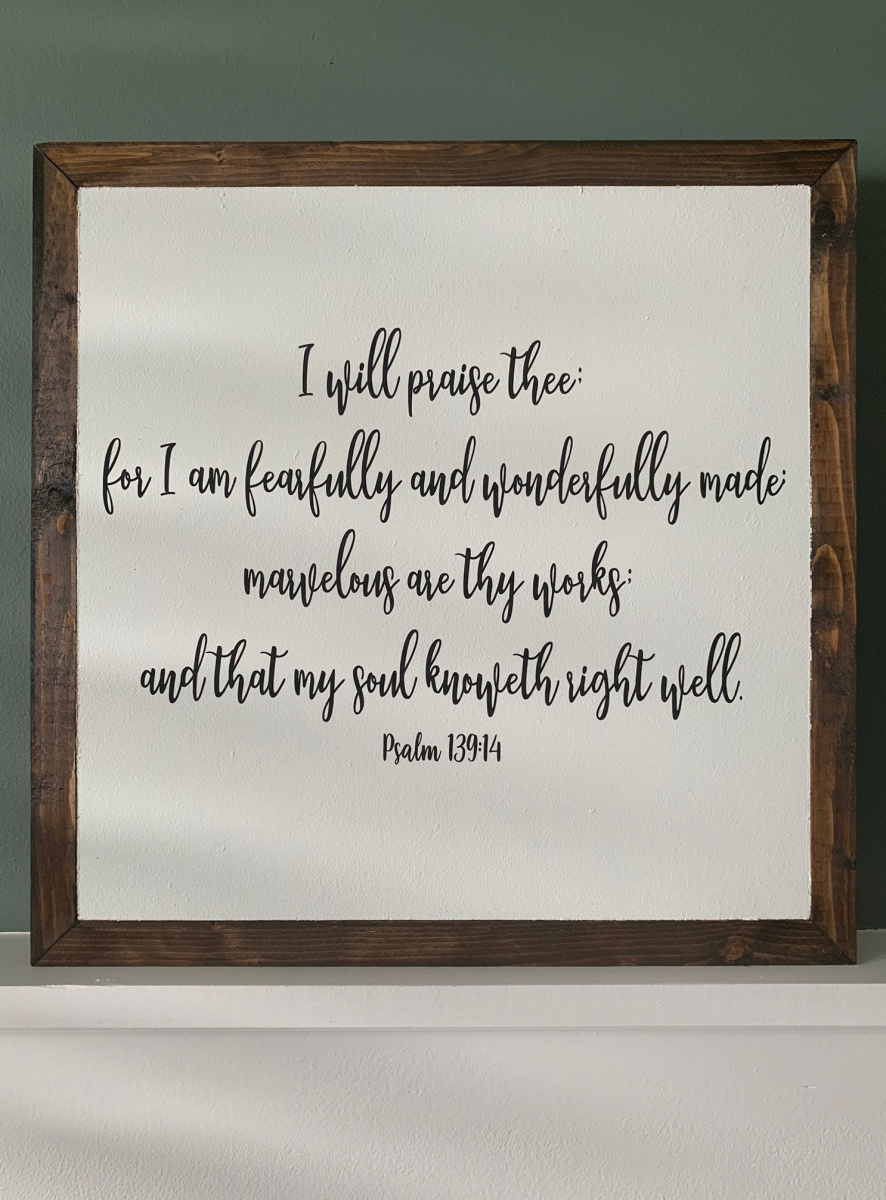 I will praise thee;
for I am fearfully and wonderfully made;
marvelous are thy works;
and that my soul knoweth right well.
Psalm 139:14